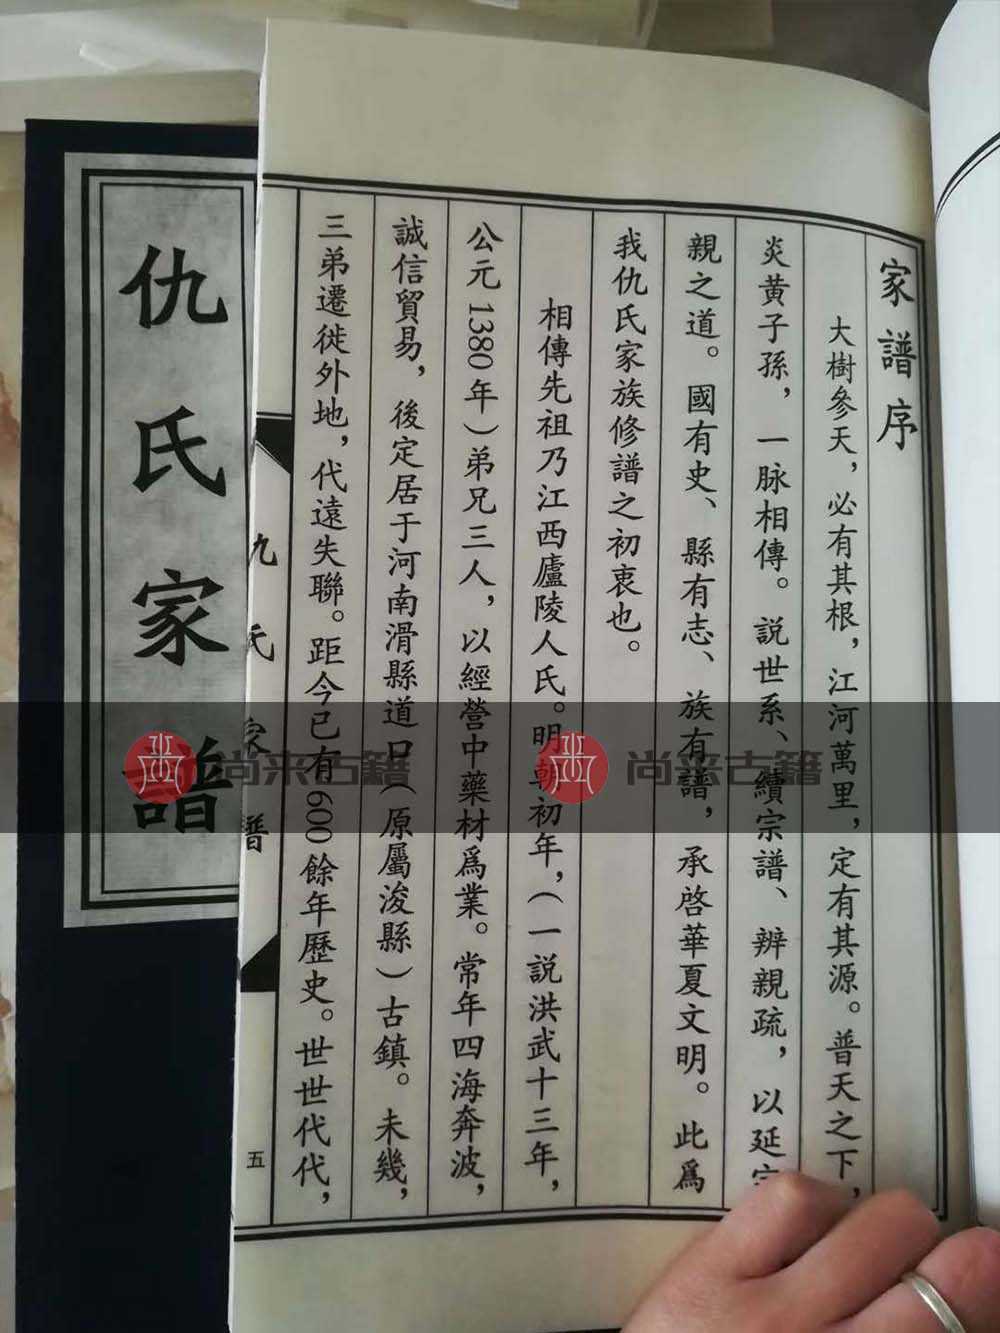 家譜序
大樹參天，必有其根，江河萬里，定有其源。普天之下，
炎黃子孫，一脉相傳。説世系、續宗譜、辨親疏，以延宗
親之道。國有史、縣有志、族有譜，承啓華夏文明。此爲
我仇氏家族修譜之初衷也。
相傳先祖乃江西廬陵人氏。明朝初年，（一説洪武十三年，
公元1380年）弟兄三人，以經營中藥材爲業。常年四海奔波，
誠信貿易，後定居于河南滑縣道口（原屬浚縣）古鎮。未幾，
三弟遷徙外地，代遠失聯。距今已有600餘年歷史。世世代代，
仇氏家譜
五
仇氏家譜
尚来古籍
尚来古籍